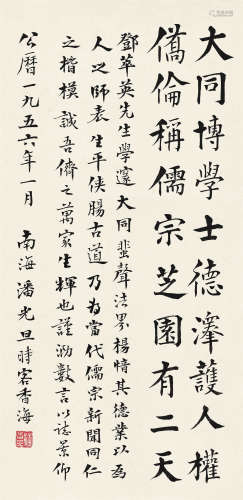 大同博學士德澤護人權
僑倫稱儒宗芝園有二天
鄧萃英先生學邃大同蜚聲法界楊情其德業以為
人之師表生平俠腸古道乃為當代儒宗新聞同仁
之楷模誠吾儕之萬家生輝也謹泐數言以誌景仰
公曆一九五六年一月 南海潘光旦時客香海